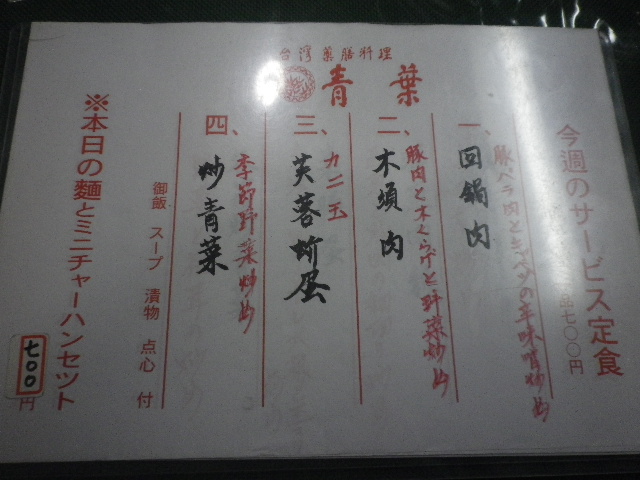 台湾薬膳料理
青葉
今週のサービス定食
品七〇〇円
一、
豚バラ肉とキャベツの辛味噌炒め
回鍋肉
二、
豚肉と木くらげと野菜炒め
木須肉
三、
カニ玉
芙蓉蚧蛋
四、
季節野菜炒め
炒青菜
御飯 スープ 漬物 点心 付
※本日の麺とミニチャーハンセット
七〇〇円